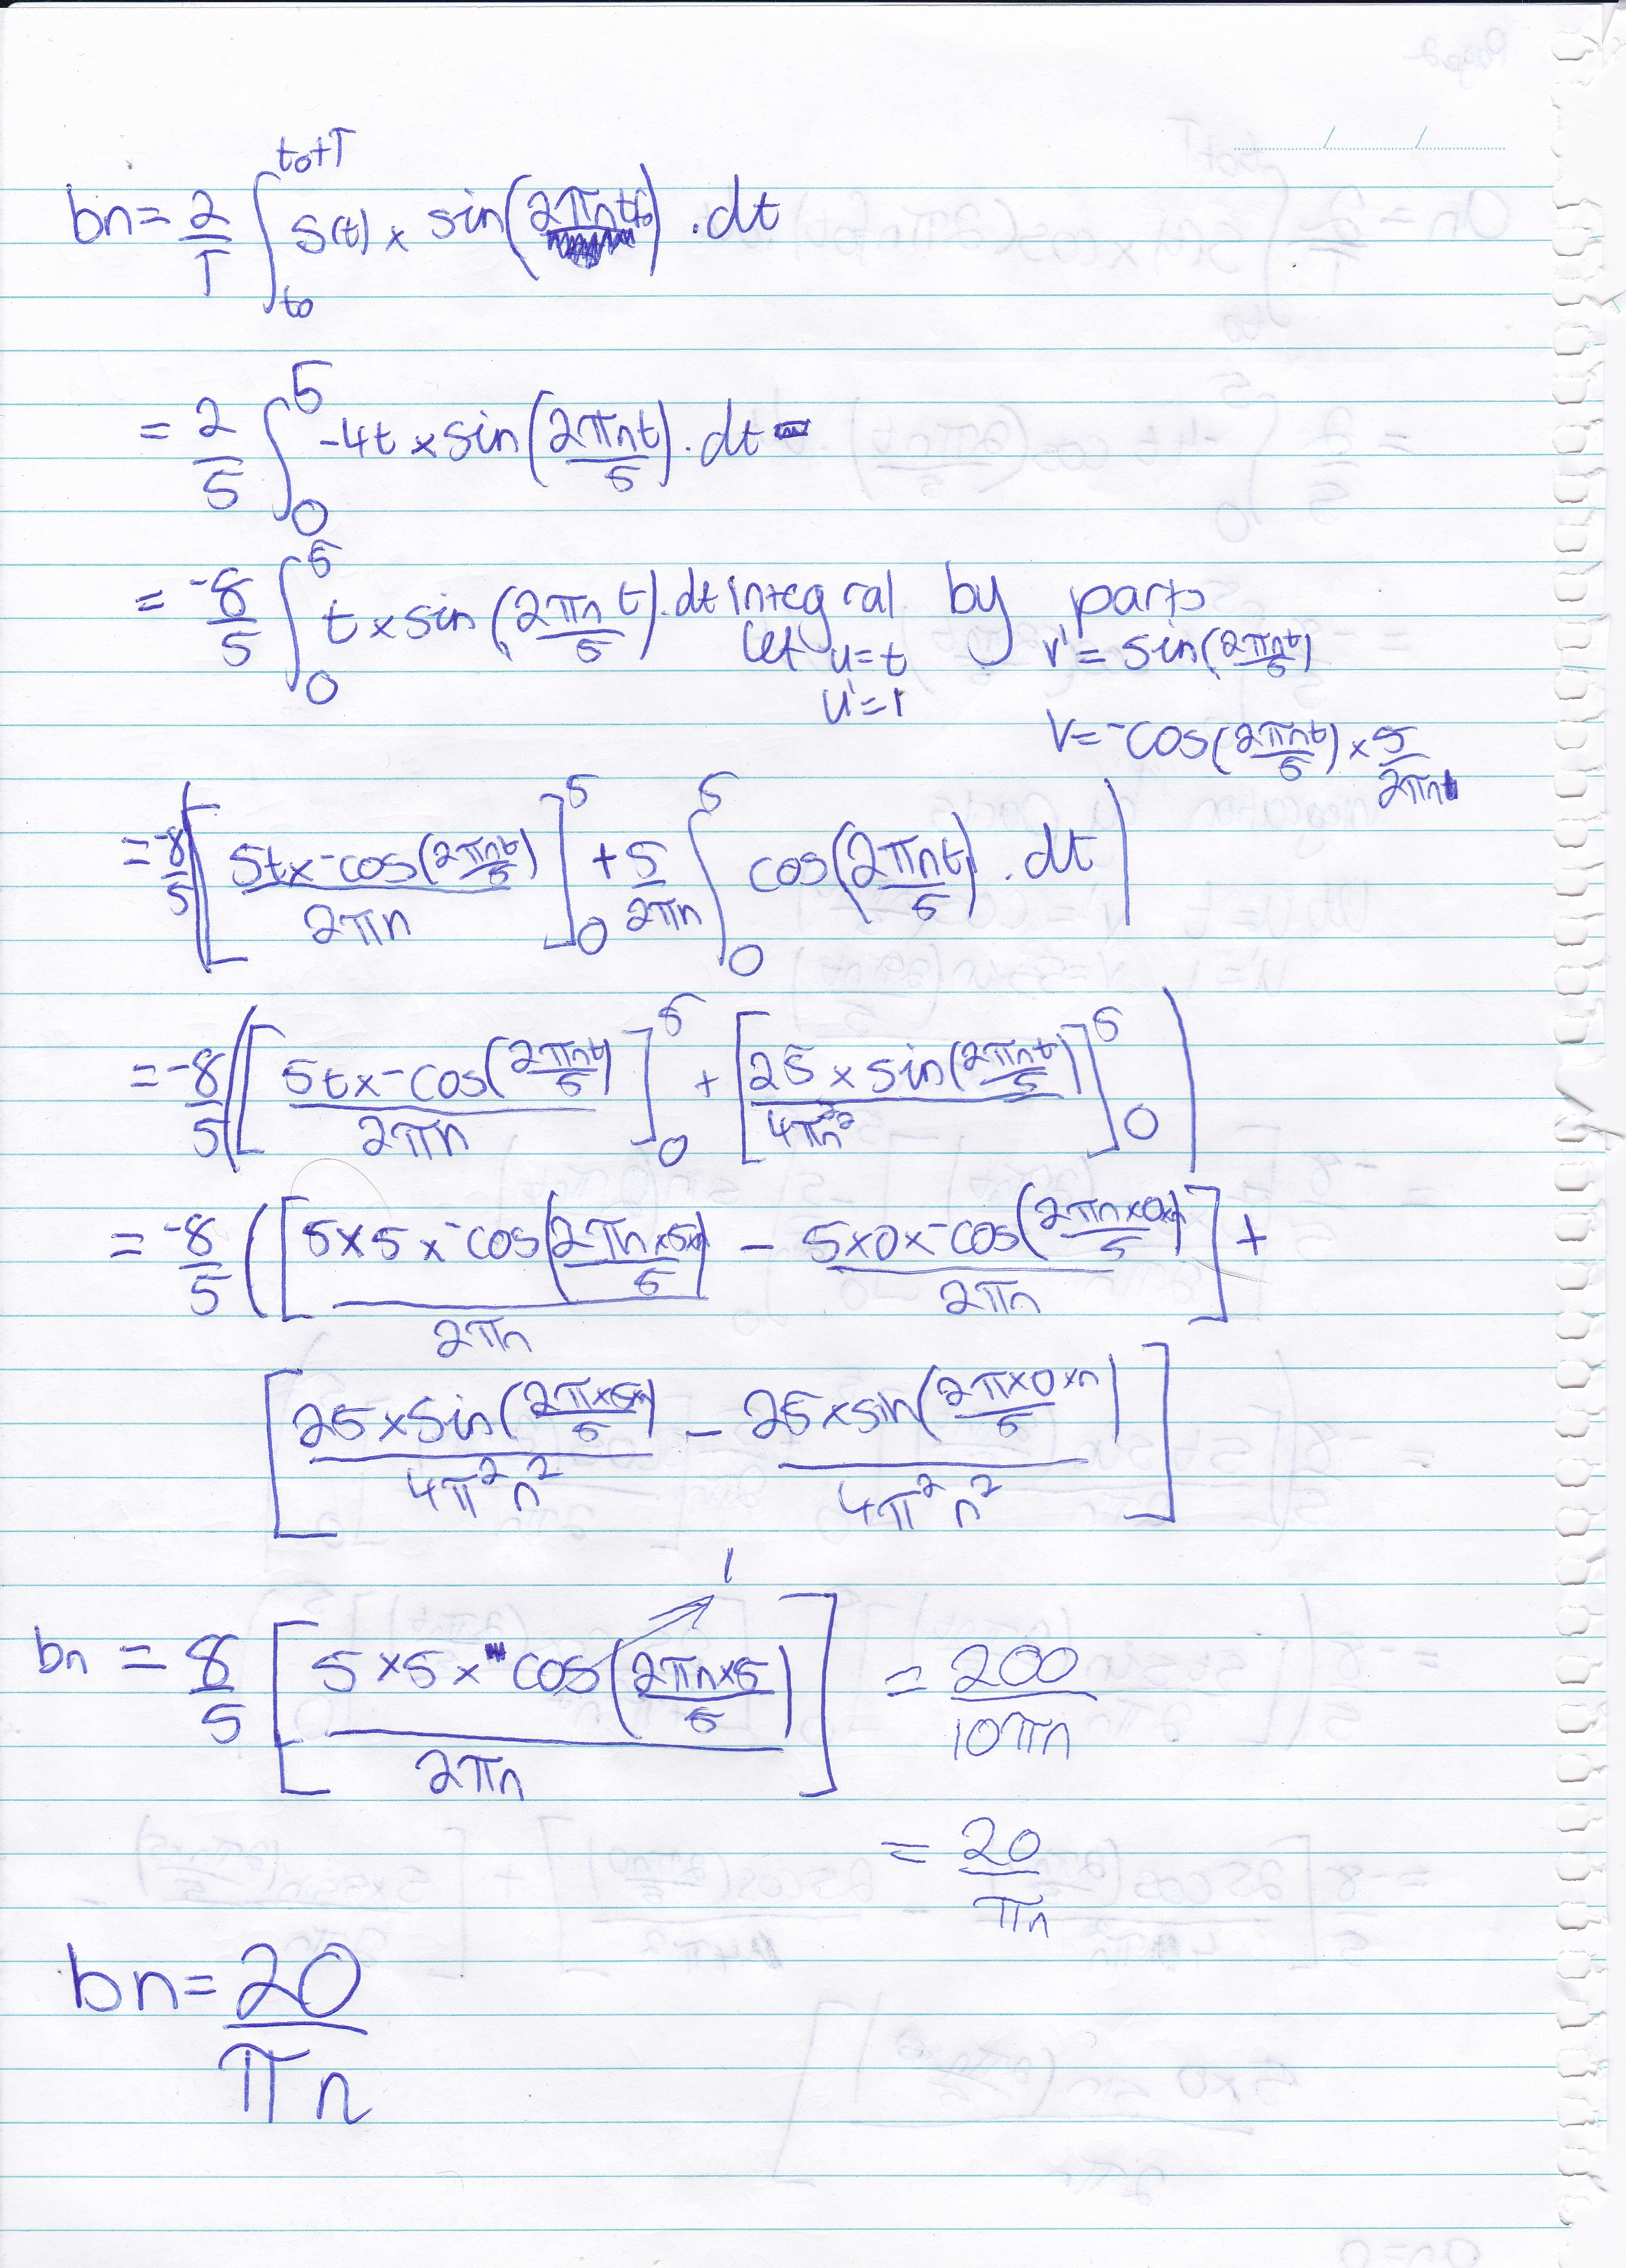 bn = 2/T ∫_{t0}^{t0+T} s(t) × sin(2πntf0) . dt
= 2/5 ∫_0^5 -4t × sin(2πnt/5) . dt
= -8/5 ∫_0^5 t × sin(2πn t/5) . dt integral by parts
let u = t v' = sin(2πnt/5)
u' = 1
V = -cos(2πnt/5) × 5/2πn
= -8/5 ([5t × -cos(2πnt/5)/2πn]_0^5 + 5/2πn ∫_0^5 cos(2πnt/5) . dt)
= -8/5 ([5t × -cos(2πnt/5)/2πn]_0^5 + [25 × sin(2πnt/5)/4π²n²]_0^5)
= -8/5 ([5×5× -cos(2πn×5/5)/2πn - 5×0× -cos(2πn×0/5)/2πn] +
[25×sin(2π×5×n/5)/4π²n² - 25×sin(2π×0×n/5)/4π²n²]
1
bn = 8/5 [5×5× cos(2πn×5/5)/2πn] = 200/10πn
= 20/πn
bn = 20/πn